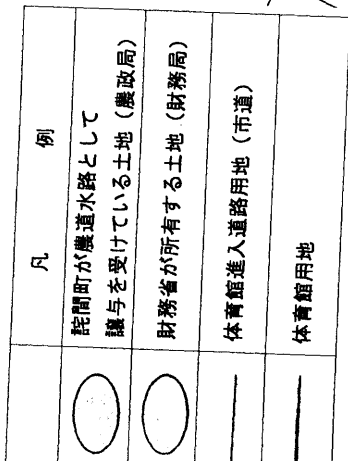 凡　例
詫間町が農道水路として
譲与を受けている土地（農政局）
財務省が所有する土地（財務局）
体育館進入道路用地（市道）
体育館用地